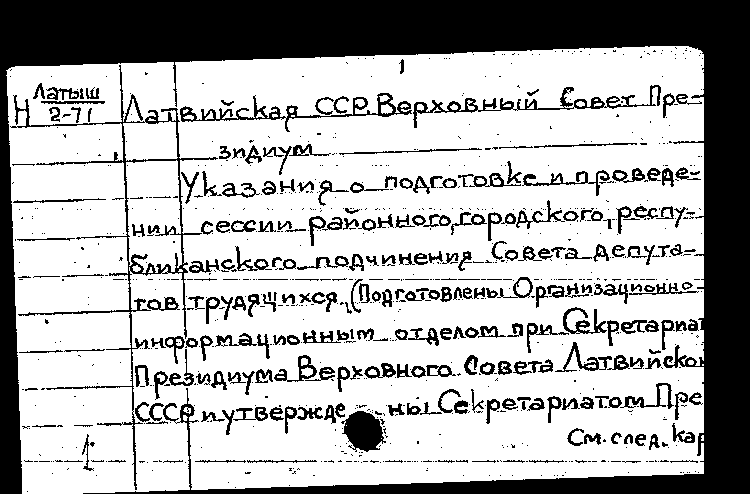 1
Латыш
Н 2-71
Латвийская ССР. Верховный Совет Пре-
зидиум
Указания о подготовке и проведе-
нии сессии районного, городского, респу-
бликанского подчинения Совета депута-
тов трудящихся. (Подготовлены Организационно-
информационным отделом при Секретариат
Президиума Верховного Совета Латвийской
СССР и утвержде ны Секретариатом Пре
См. след. кар
1